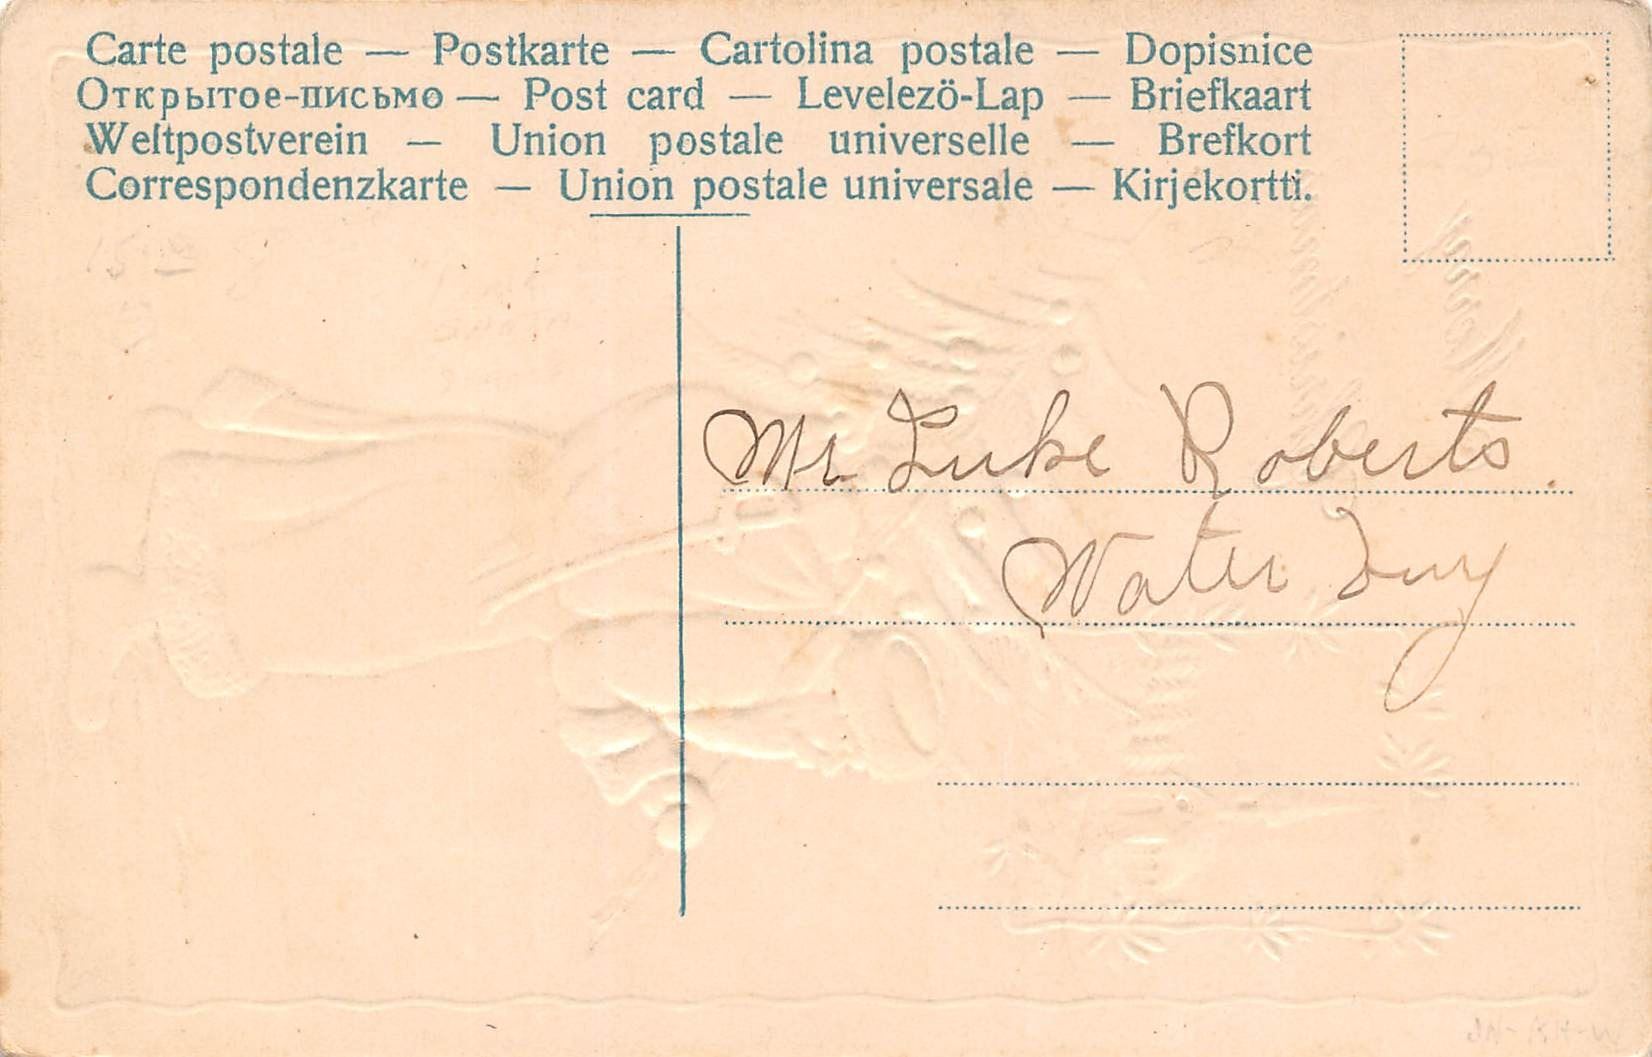 Carte postale — Postkarte — Cartolina postale — Dopisnice
Открытое-письмо — Post card — Levelezö-Lap — Briefkaart
Weltpostverein — Union postale universelle — Brefkort
Correspondenzkarte — Union postale universale — Kirjekortti.
Mr Luke Roberts.
Water bury